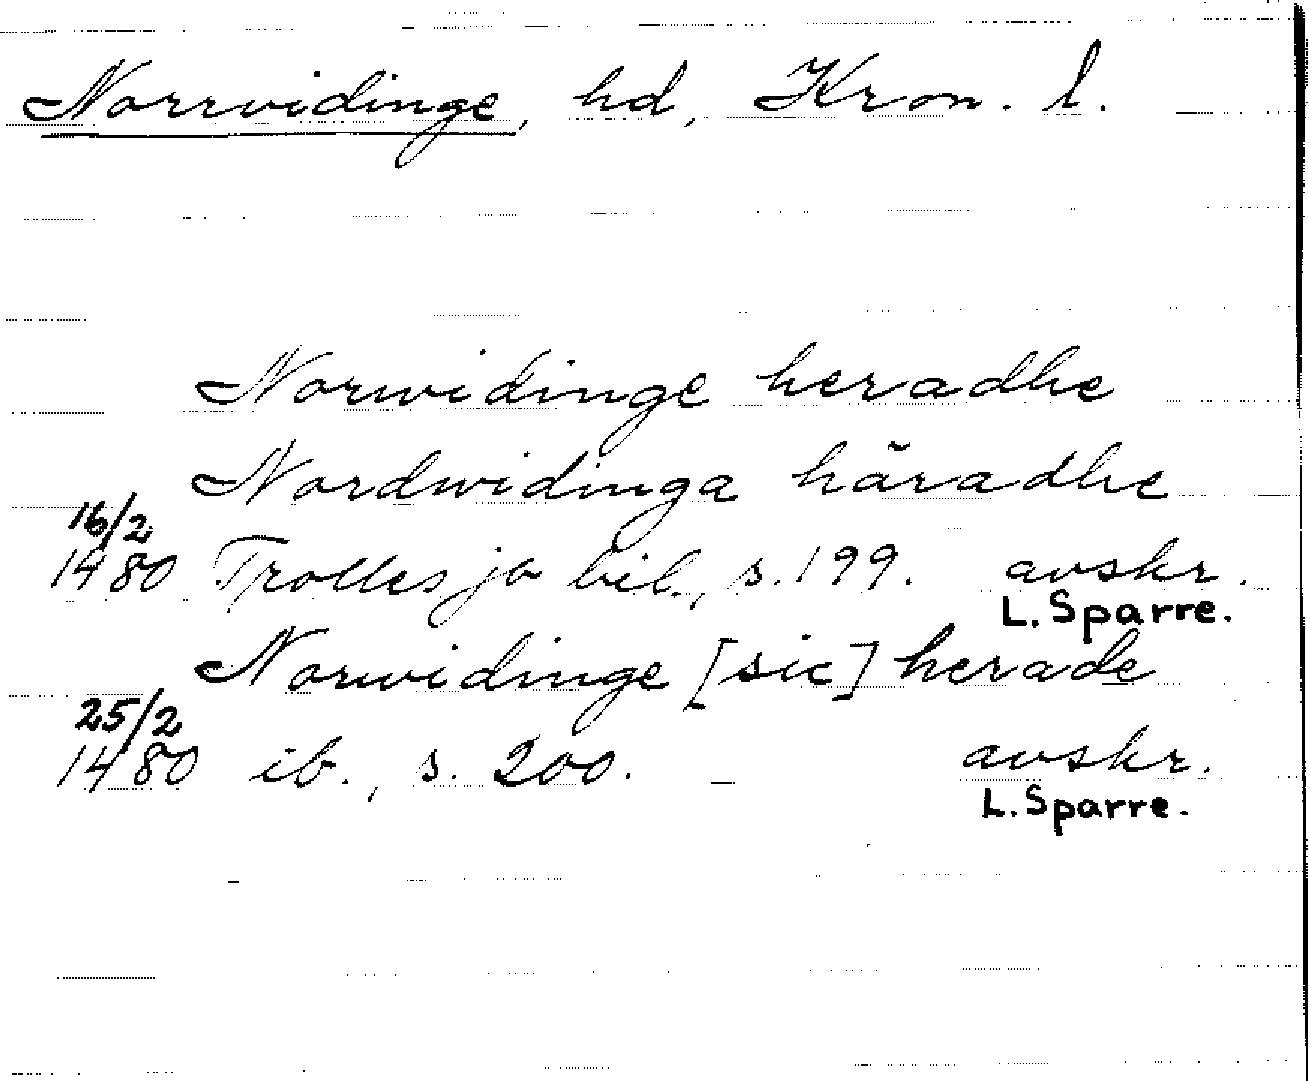 Norrvidinge, hd, Kron. l.
Norwidinge heradhe
Nordwidinga häradhe
16/2
1480 Trolles jb bil., s. 199. avskr.
L. Sparre.
Norwidinge [sic] herade
25/2
1480 ib., s. 200. avskr.
L. Sparre.